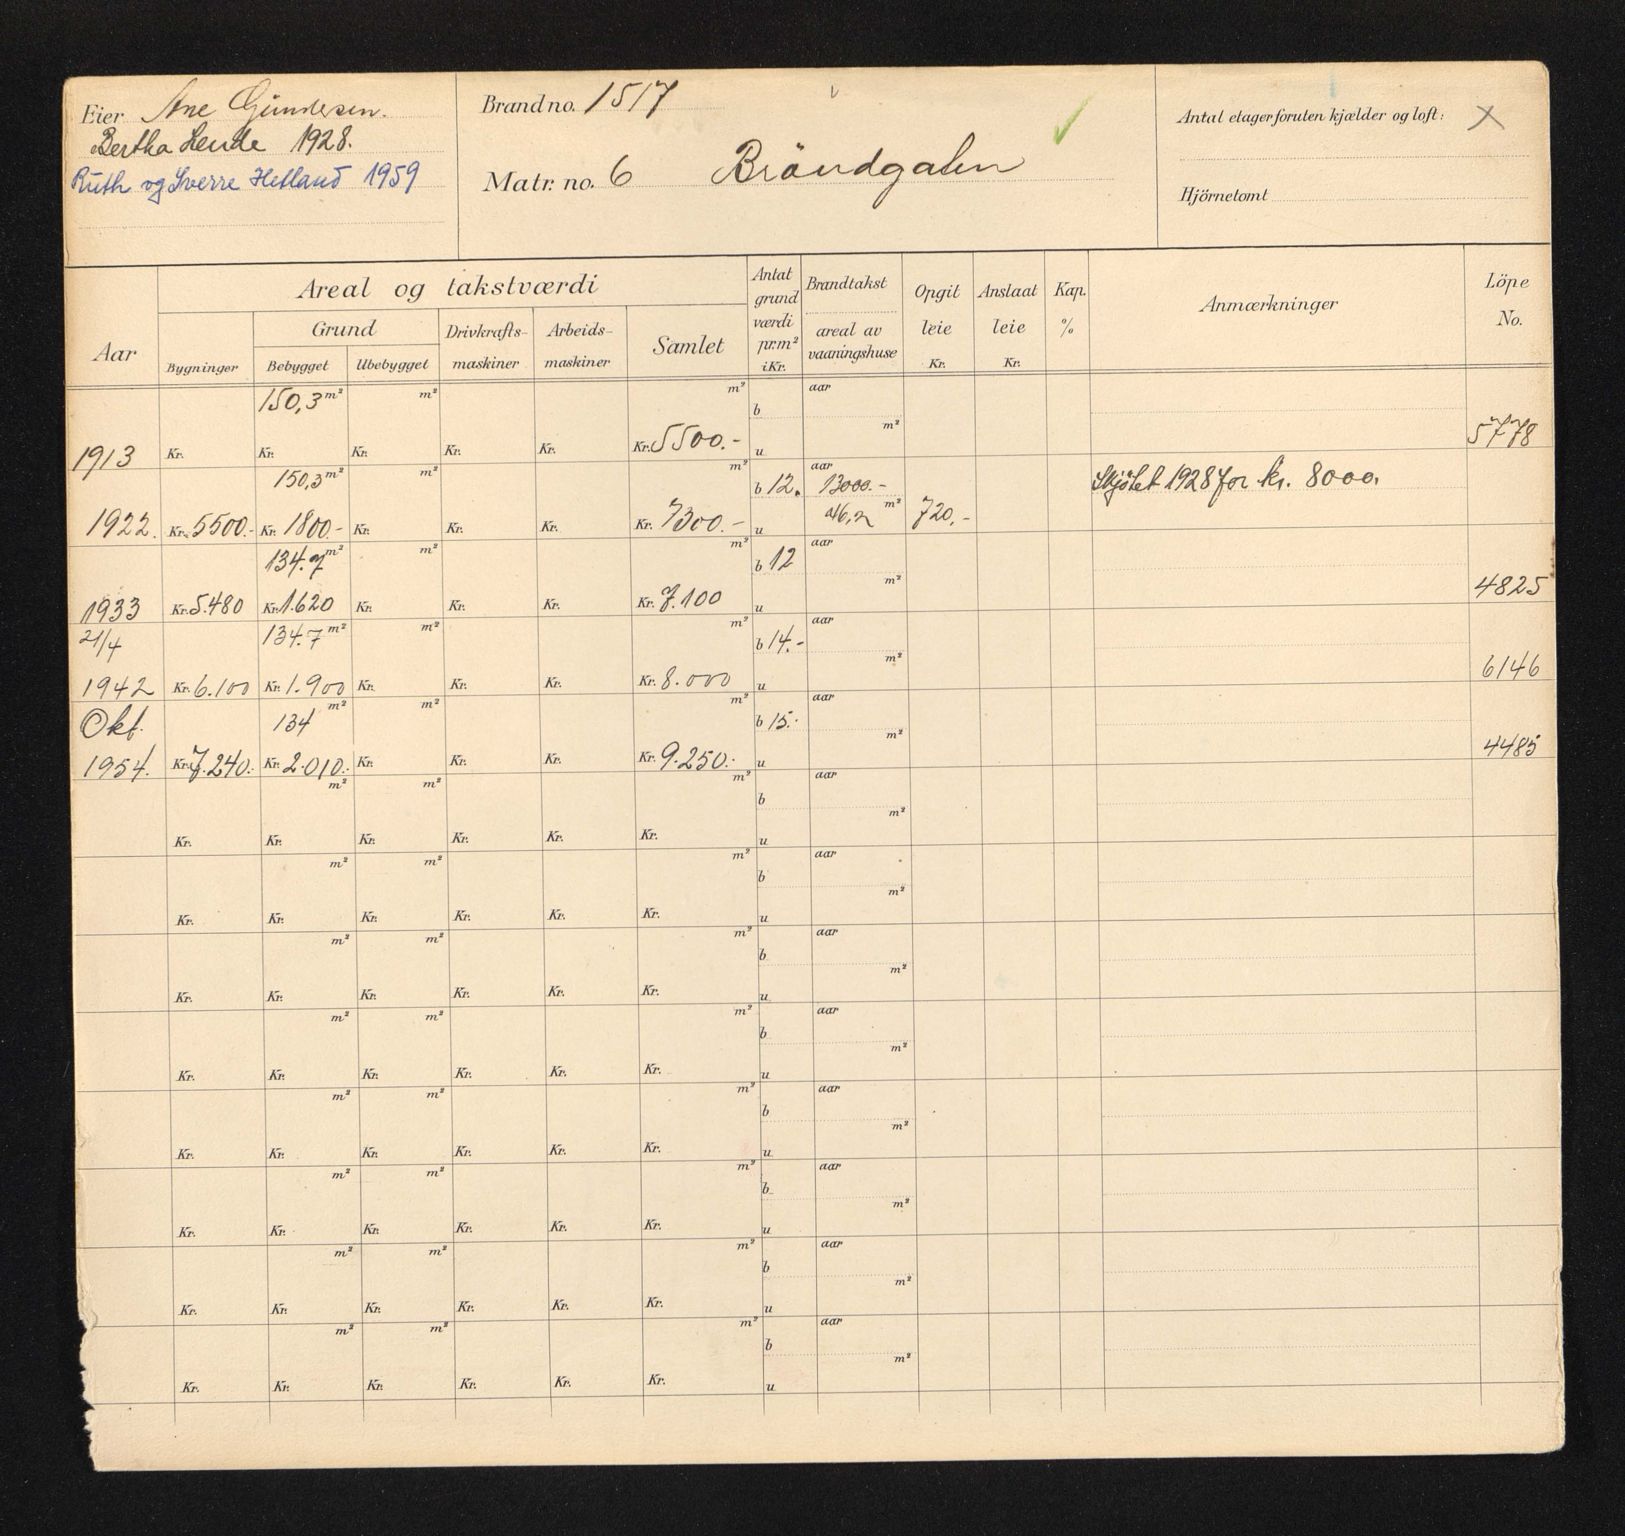 Eier Ane Gundersen.
Bertha Hende 1928.
Ruth og Sverre Hetland 1959
Brandno. 1517
Matr. no. 6 Bröndgaten
Antal etager foruten kjælder og loft: X
Hjörnetomt
Aar
Areal og takstværdi
Bygninger
Grund
Bebygget Ubebygget
Drivkrafts-
maskiner
Arbeids-
maskiner
Samlet
Antat
grund
værdi
pr.m²
i Kr.
Brandtakst
areal av
vaaningshuse
Opgit
leie
Kr.
Anslaat
leie
Kr.
Kap.
%
Anmærkninger
Löpe
No.
150,3 m² m² m² b aar
1913 Kr. Kr. Kr. Kr. Kr. Kr. 5500.- u m² 5778
150,3 m² m² m² b 12. aar 13000.- Skjötet 1928 for kr. 8000.
1922. Kr. 5500.- Kr. 1800.- Kr. Kr. Kr. Kr. 7300.- u m² 720.-
134.7 m² m² m² b 12 aar
1933 Kr. 5.480 Kr. 1.620 Kr. Kr. Kr. Kr. 7.100 u m² 4825
21/4 134.7 m² m² m² b 14.- aar
1942 Kr. 6.100 Kr. 1.900 Kr. Kr. Kr. Kr. 8.000 u m² 6146
Okt. 134 m² m² m² b 15.- aar
1954. Kr. 7.240.- Kr. 2.010.- Kr. Kr. Kr. Kr. 9.250.- u m² 4485
m² m² m² b aar
Kr. Kr. Kr. Kr. Kr. Kr. u m²
m² m² m² b aar
Kr. Kr. Kr. Kr. Kr. Kr. u m²
m² m² m² b aar
Kr. Kr. Kr. Kr. Kr. Kr. u m²
m² m² m² b aar
Kr. Kr. Kr. Kr. Kr. Kr. u m²
m² m² m² b aar
Kr. Kr. Kr. Kr. Kr. Kr. u m²
m² m² m² b aar
Kr. Kr. Kr. Kr. Kr. Kr. u m²
m² m² m² b aar
Kr. Kr. Kr. Kr. Kr. Kr. u m²
m² m² m² b aar
Kr. Kr. Kr. Kr. Kr. Kr. u m²